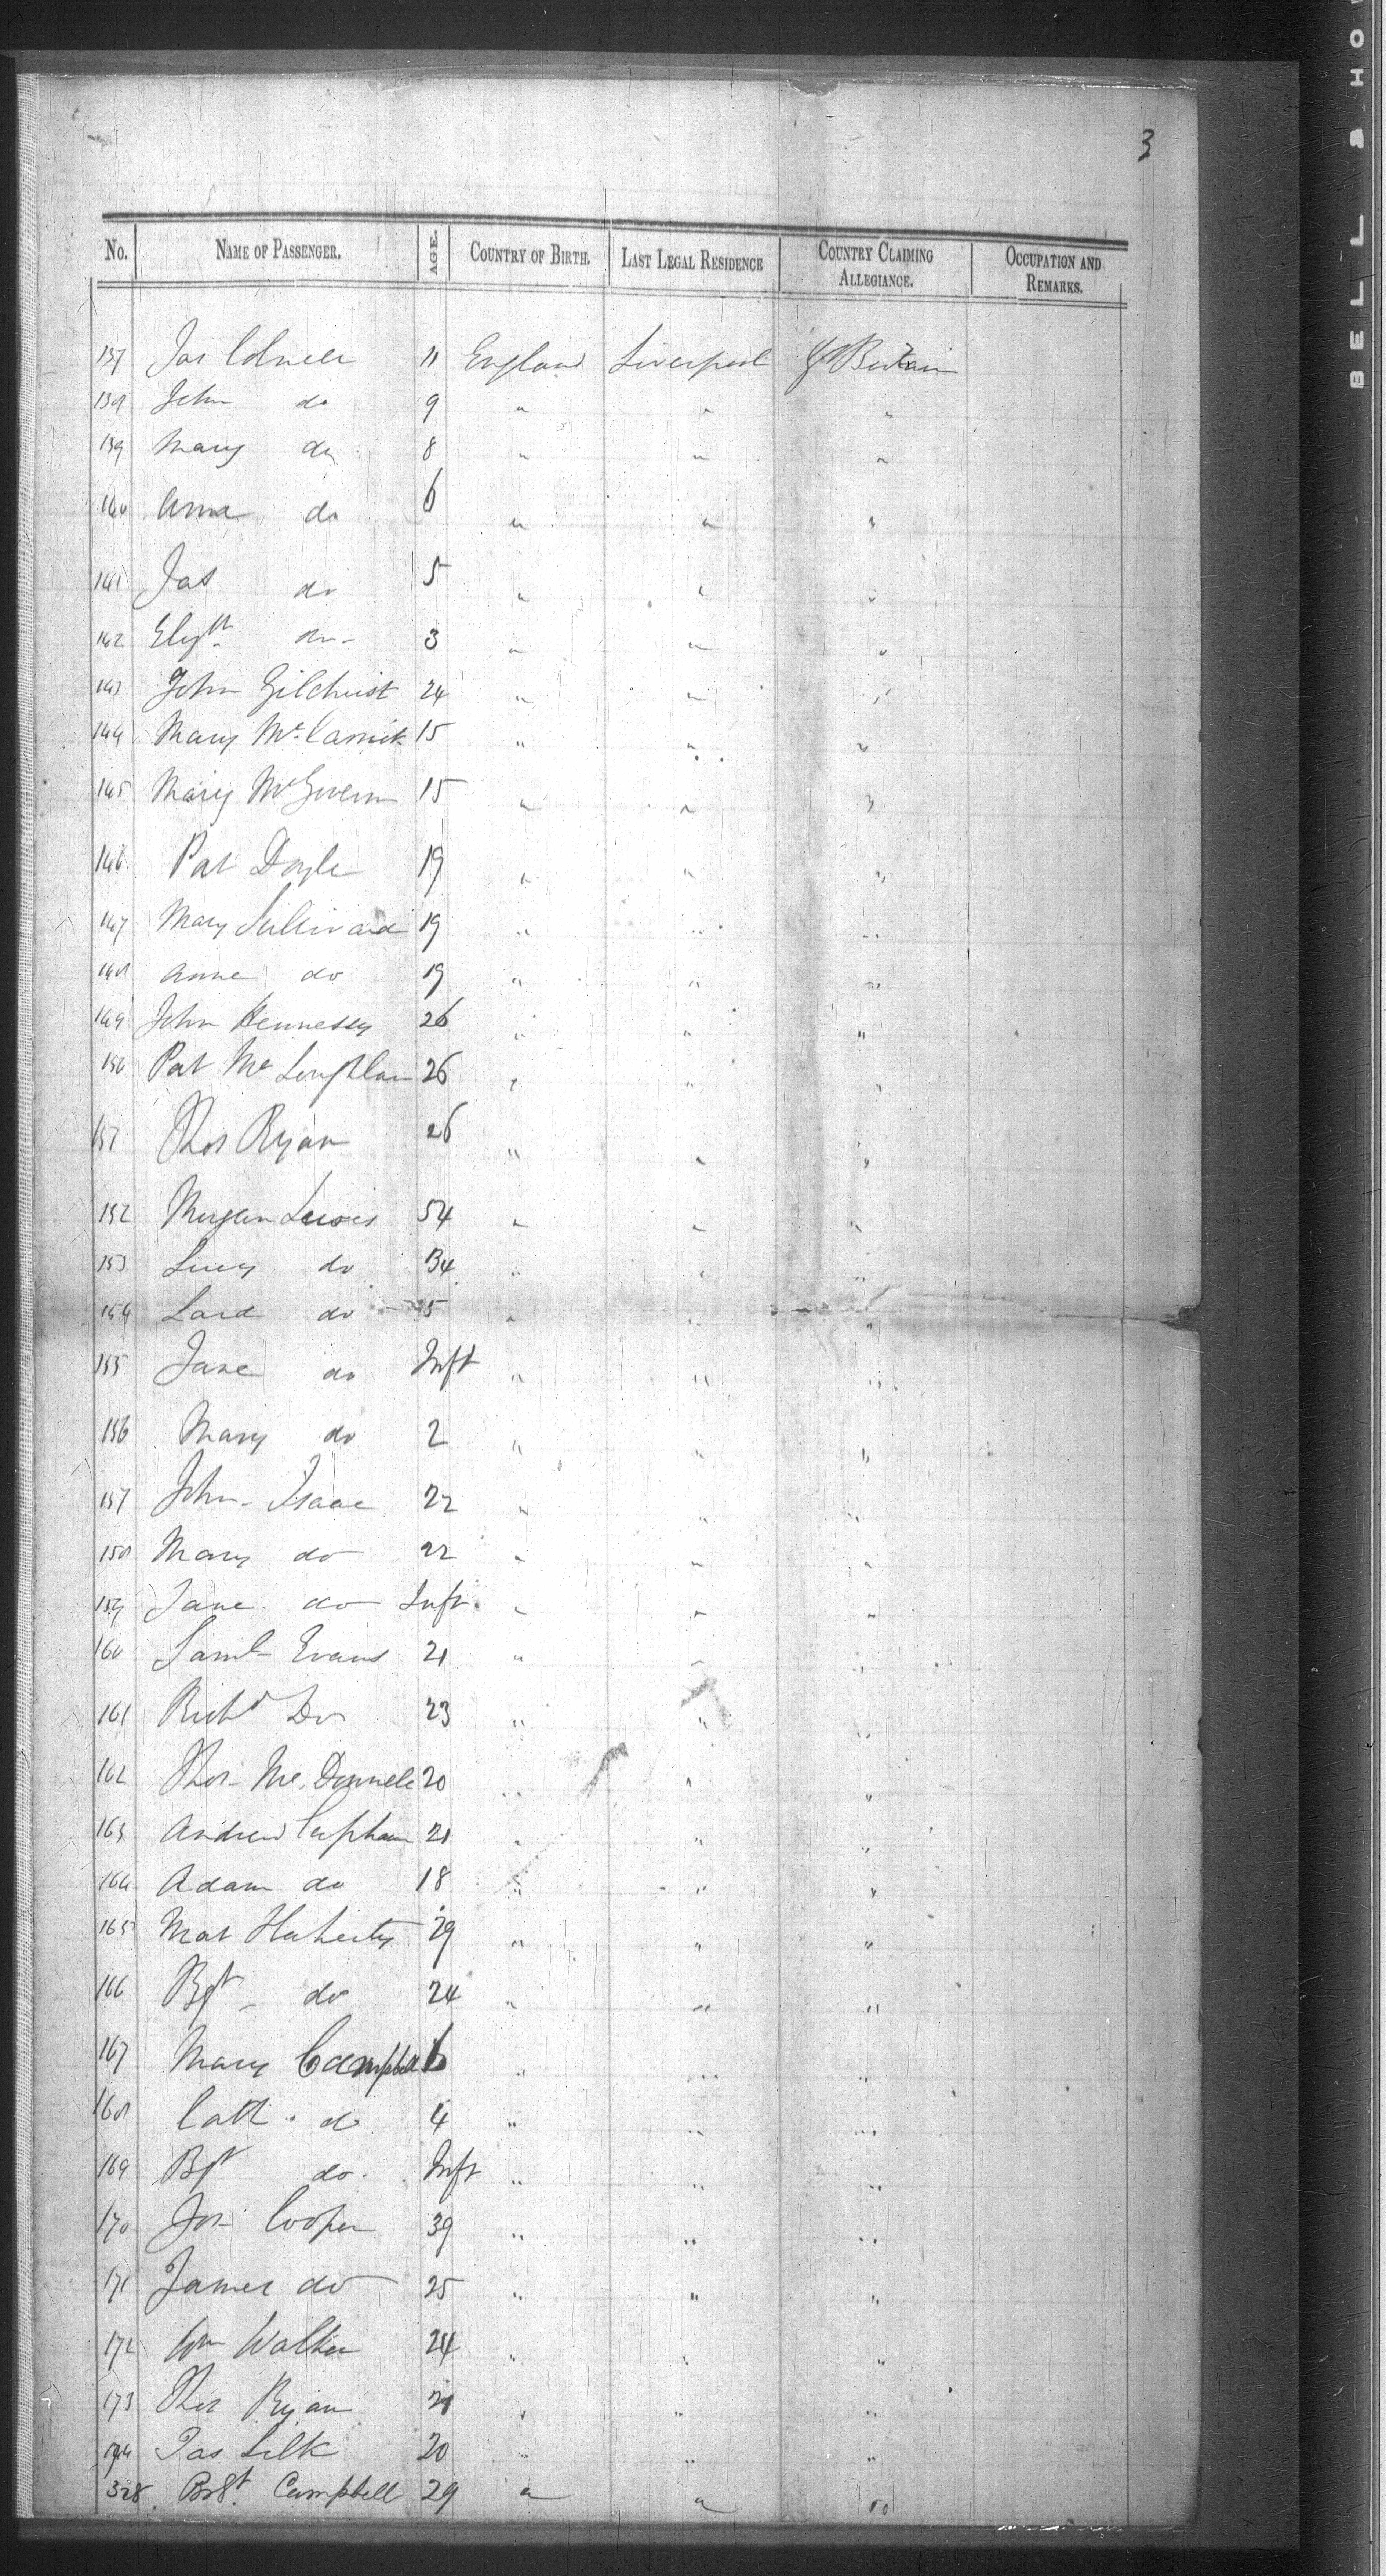 BELL & HO
3
No. NAME OF PASSENGER. AGE. COUNTRY OF BIRTH. LAST LEGAL RESIDENCE COUNTRY CLAIMING ALLEGIANCE. OCCUPATION AND REMARKS.
137 Jas 11 England Liverpool Gt Britain
138 John do 9 " " "
139 Mary do 8 " " "
140 Anna do 6 " " "
141 Jas do 5 " " "
142 Elizth do 3 " " "
143 John Gilchrist 24 " " "
144 Mary 15 " " "
145 Mary McGovern 15 " " "
146 Pat Doyle 19 " " "
147 Mary 19 " " "
148 Anne do 19 " " "
149 John Hennessy 26 " " "
150 Pat Mc Loughlan 26 " " "
151 Thos Ryan 26 " " "
152 Morgan Lewis 54 " " "
153 Lucy do 34 " " "
154 do 5 " " "
155 Jane do Inft " " "
156 Mary do 2 " " "
157 John Isaac 22 " " "
158 Mary do 22 " " "
159 Jane do Inft. " " "
160 Saml Evans 21 " " "
161 Richd Do 23 " " "
162 Thos Mc.Donnell 20 " " "
163 Andrew 21 " " "
164 Adam do 18 " " "
165 Mat 29 " " "
166 Bgt do 24 " " "
167 Mary Campbell 6 " " "
168 Cath. do 4 " " "
169 Bgt do. Inft " " "
170 Cooper 39 " " "
171 James do 25 " " "
172 Wm Walker 24 " " "
173 Thos Ryan 21 " " "
174 Jas Silk 20 " " "
328. Brgt. Campbell 29 " " "